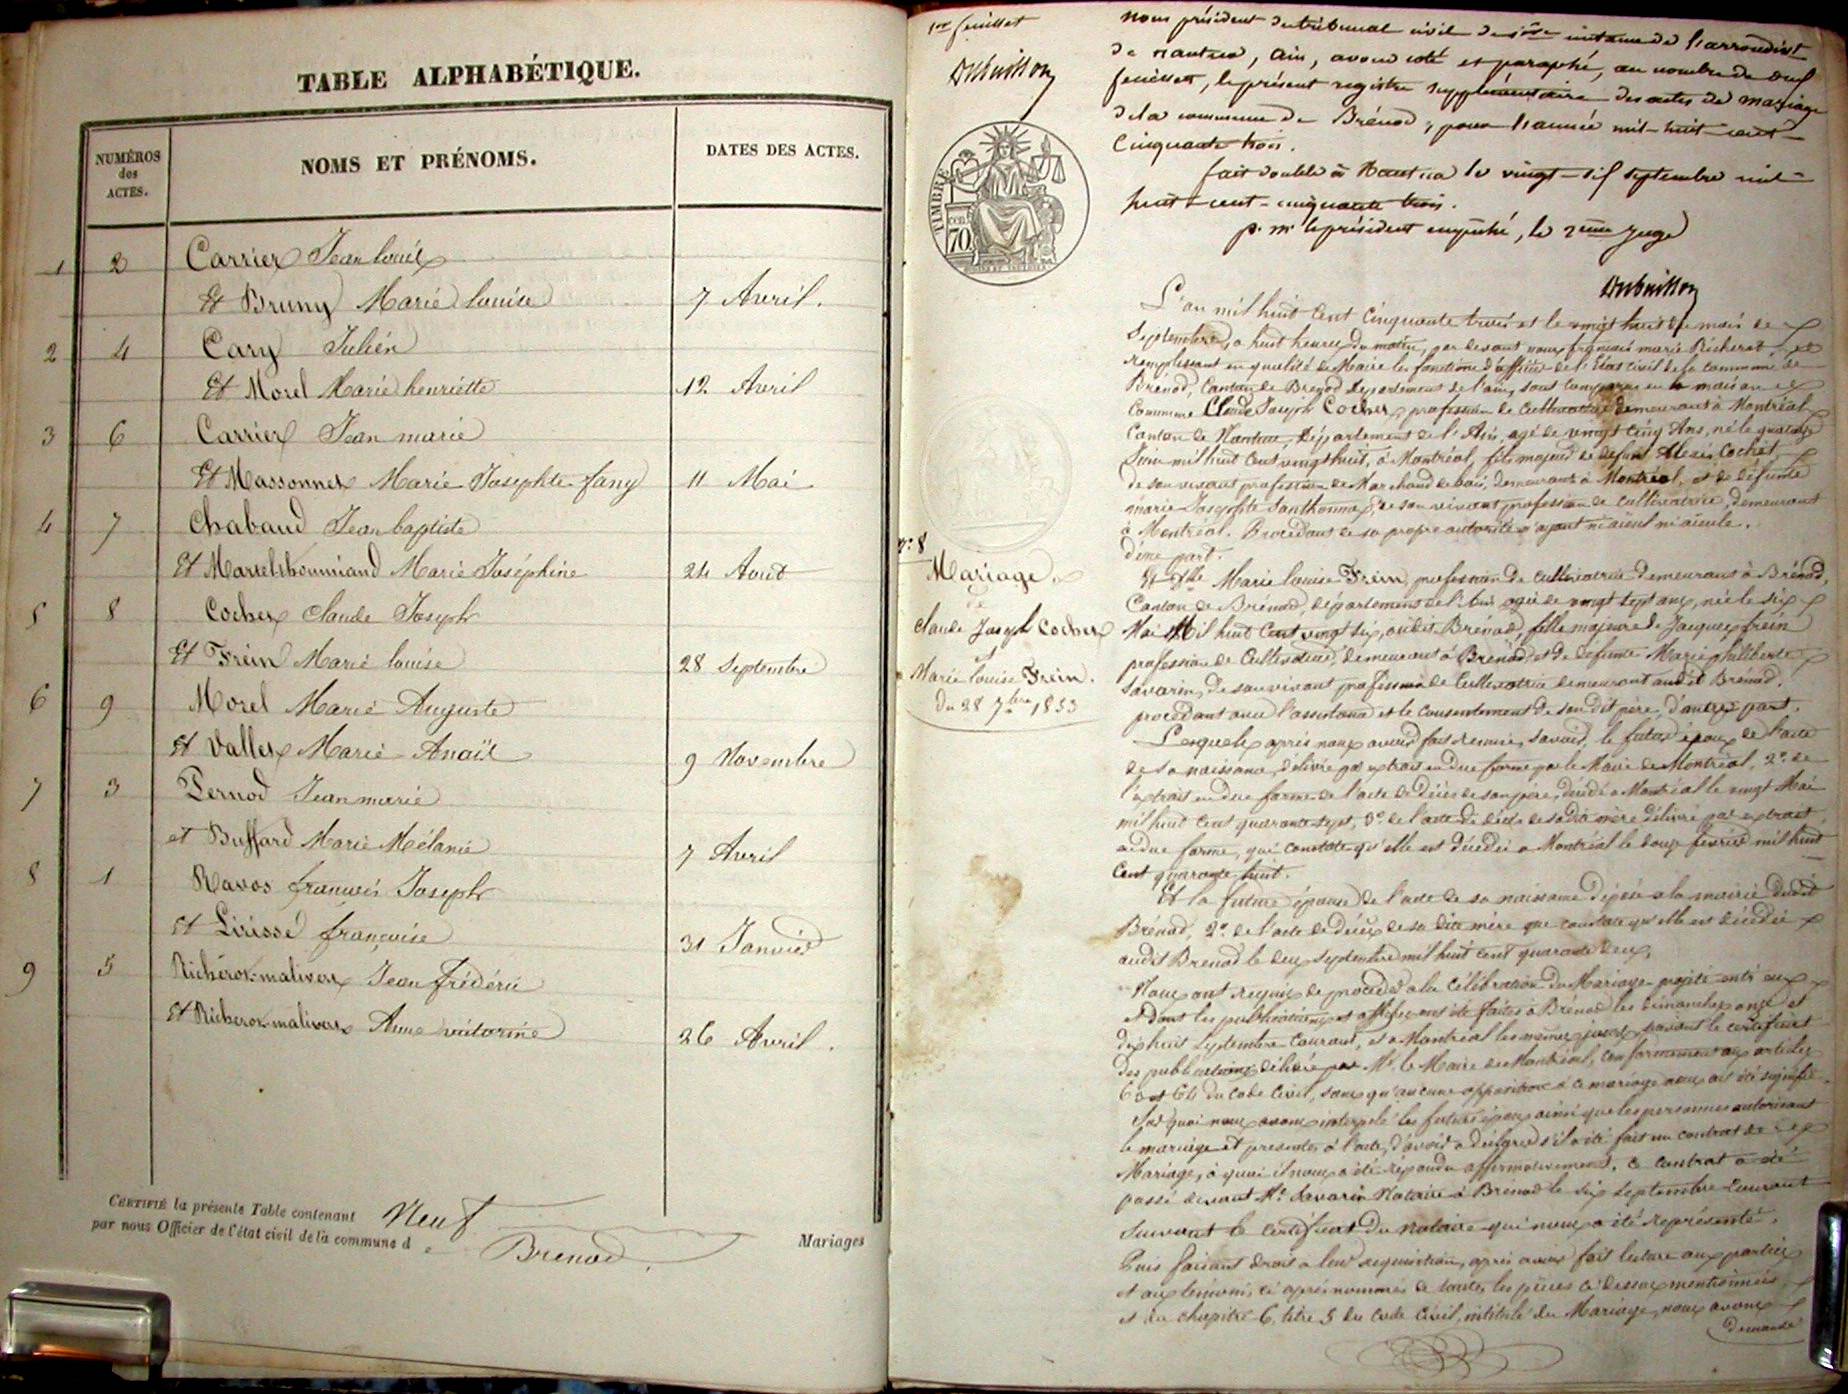 TABLE ALPHABÉTIQUE.
NUMÉROS
des
ACTES.
NOMS ET PRÉNOMS.
DATES DES ACTES.
1 2 Carrier Jean louis
Et Bruny Marie louise 7 Avril.
2 4 Cary Julien
Et Morel Marie henriette 12 Avril
3 6 Carrier Jean marie
Et Massonnet Marie Josephte fany 11 Mai
4 7 Chabaud Jean baptiste
Et Marie Joséphine 24 Aout
5 8 Cochet Claude Joseph
Et Frein Marie louise 28 Septembre
6 9 Morel Marie Auguste
Et Vallet Marie Anaïs 9 Novembre
7 3 Pernod Jean marie
et Buffard Marie Mélanie 7 Avril
8 1 Ravos françois Joseph
Et françoise 31 Janvier
9 5 Richerot-malivert Jean frédéric
Et Richerot-malivert Anne victorine 26 Avril.
CERTIFIÉ la présente Table contenant Neuf Mariages
par nous Officier de l'état civil de la commune de Brenod.
1er feuillet
Dubuisson
nous président du tribunal civil de 1ère instance de l'arrondist
de nantua, ain, avons coté et paraphé, au nombre de
feuillets, le présent registre supplémentaire des actes de mariage
de la commune de Brénod, pour l'année mil-huit-cent-
Cinquante trois.
fait double à Nantua le vingt-six septembre mil-
huit-cent-cinquante trois.
p. mr le président empêché, le 2eme juge
Dubuisson
TIMBRE
70
L'an mil huit Cent Cinquante trois et le vingt huit du mois de
Septembre, a huit heures du matin, par devant nous françois marie Richerot,
remplissant en qualité de Maire les fonctions d'officier de l'Etat Civil de la Commune de
Brenod, Canton de Brenod Departement de l'ain, sont comparus en la maison
Commune Claude Joseph Cochet, profession de Cultivateur demeurant à Montréal
Canton de Nantua, Département de l'Ain, agé de vingt Cinq Ans, né le quatorze
Juin mil huit Cent vingt huit, à Montréal, fils majeur de défunt Alexis Cochet,
de son vivant profession de Marchand de bois, demeurant à Montréal, et de défunte
marie Josephte Santhonnax, de son vivant profession de cultivatrice, demeurant
à Montréal. Procédant de sa propre autorité n'ayant ni aïeul ni aïeule.
d'une part.
Et Dlle Marie louise Frein, profession de Cultivatrice demeurant à Brénod,
Canton de Brénod, département de l'Ain agée de vingt sept ans, née le six
Mai Mil huit Cent vingt six, audit Brénod, fille majeure de Jacques frein
profession de Cultivateur, demeurant à Brénod, et de defunte Marie philiberte
Savarin, de son vivant profession de Cultivatrice demeurant audit Brenod.
procédant avec l'assistance et le consentement de son dit père, d'autre part.
n° 8
Mariage
de
Claude Joseph Cochet
et
Marie louise Frein.
du 28 7bre 1853
Lesquels après nous avoir fait remise, savoir, le futur époux de l'acte
de sa naissance, délivré par extrait en due forme par le Maire de Montréal, 2° de
l'extrait en due forme de l'acte de décès de son père, décédé a Montréal le vingt Mai
mil huit Cent quarante sept, 3° de l'acte de décès de sa dite mère délivré par extrait
en due forme, qui constate qu'elle est décédée a Montréal le douze février mil huit
Cent quarante huit.
Et la future épouse de l'acte de sa naissance déposé a la mairie dudit
Brénod, 2° de l'acte de décès de sa dite mère que constate qu'elle est décédée
audit Brenod le deux Septembre mil huit Cent quarante deux,
Nous ont requis de procéder a la Célébration du Mariage projeté entr'eux
et dont les publications et affiches ont été faites à Brénod les dimanches onze et
dix huit Septembre Courant, et a Montréal les mêmes jours, suivant le certificat
des publications délivré par Mr. le Maire de Montréal, Conformément aux articles
63 et 64 du Code Civil, sans qu'aucune opposition à ce mariage nous ait été signifiée.
Sur quoi nous avons interpelé les futurs époux ainsi que les personnes autorisant
le mariage et presentes à l'acte, d'avoir a déclarer s'il a été fait un contrat de
Mariage, à quoi il nous a été répondu affirmativement. Ce contrat a été
passé devant Me Savarin Notaire à Brénod le six Septembre Courant
Suivant le Certificat du notaire qui nous a été représenté.
Puis faisant droit a leur réquisition, après avoir fait lecture aux parties
et aux témoins, ci après nommés de toutes les pièces ci dessus mentionnées,
et du chapitre 6. titre 5 du Code Civil, intitulé du Mariage, nous avons
demandé